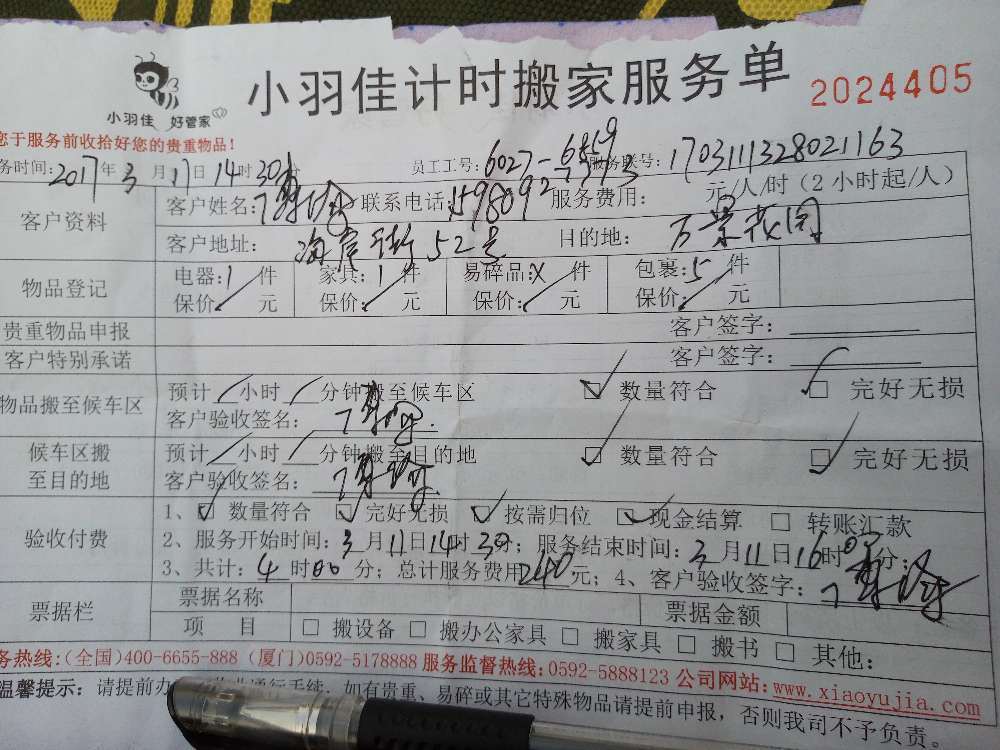 小羽佳 好管家
小羽佳计时搬家服务单
2024405
您于服务前收拾好您的贵重物品!
务时间: 2017年3月11日14时30分 员工工号: 6027-6859 服务联号: 1703111328021163
客户资料 客户姓名: 联系电话: 服务费用: 元/人/时(2小时起/人)
客户地址: 海岸街52号 目的地: 万景花园
物品登记 电器: 1 件 家具: 1 件 易碎品: x 件 包裹: 5 件
保价: 元 保价: 元 保价: 元 保价: 元
贵重物品申报 客户签字:
客户特别承诺 客户签字:
物品搬至候车区 预计 小时 分钟搬至候车区 数量符合 完好无损
客户验收签名:
候车区搬至目的地 预计 小时 分钟搬至目的地 数量符合 完好无损
客户验收签名:
验收付费 1、数量符合 完好无损 按需归位 现金结算 转账汇款
2、服务开始时间: 3月11日14时30分; 服务结束时间: 3月11日16时 分;
3、共计: 4时00分; 总计服务费用240元; 4、客户验收签字:
票据栏 票据名称 票据金额
项 目 搬设备 搬办公家具 搬家具 搬书 其他:
务热线:(全国)400-6655-888 (厦门)0592-5178888 服务监督热线:0592-5888123 公司网站:www.xiaoyujia.com
温馨提示: 请提前办 通行手续,如有贵重、易碎或其它特殊物品请提前申报,否则我司不予负责。